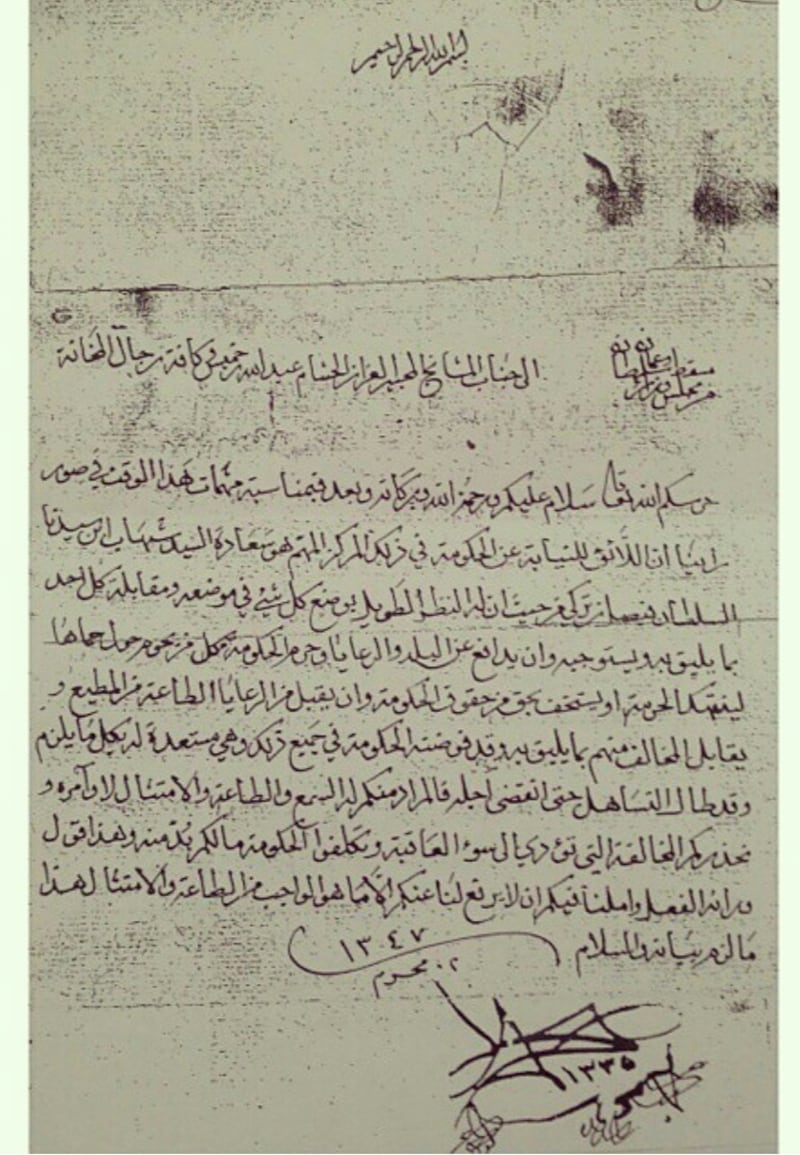 بسم الله الرحمن الرحيم
من مجلس وزراء
سلطانة
مسقط وعمان
الى جناب المشايخ المحبين العزاز الحشام عبدالله وجميع كافة رجال المخانة
حرسكم الله تعالى سلام عليكم ورحمة الله وبركاته وبعد فبمناسبة مهمات هذا الوقت في صور
راينا ان اللائق للنيابة عن الحكومة في ذلك المركز المهم هو سعادة السيد شهاب ابن سيدنا
السلطان فيصل بن تركي فرحيث ان له النظر الطويل يوضع كل شيء في موضعه ومقابلة كل احد
بما يليق به ويستوجبه وان يدافع عن البلد والرعايا وحرم الحكومة كل من يحوم حول حماها
ليفتك الحرمة او يستخف بحق من حقوق الحكومة وان يقبل من الرعايا الطاعة من المطيع و
يقابل المخالف منهم بما يليق به وقد فوضته الحكومة في جميع ذلك وهي مستعدة له بكل ما يلزم
وقد طال التساهل حتى انقضى اجله فالمراد منكم له السمع والطاعة والامتثال لاوآمره و
نحذركم المخالفة التي تؤدي الى سوء العاقبة وتكلفوا الحكومة مالكم بد منه وهذا قول
ورائه الفعل واملنا فيكم ان لا يرفع لنا عنكم الا ما هو الواجب من الطاعة والامتثال هذا
ما لزم بيانه والسلام
٢٠ محرم ١٣٤٧
١٣٣٥